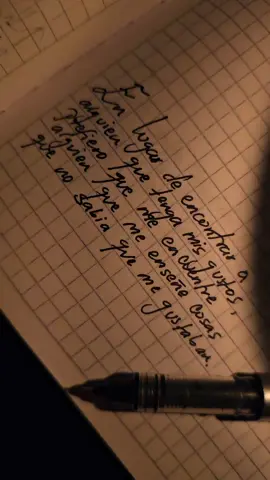 En lugar de encontrar a
alguien que tenga mis gustos,
prefiero que me encuentre
alguien que me enseñe cosas
que no sabía que me gustaban.